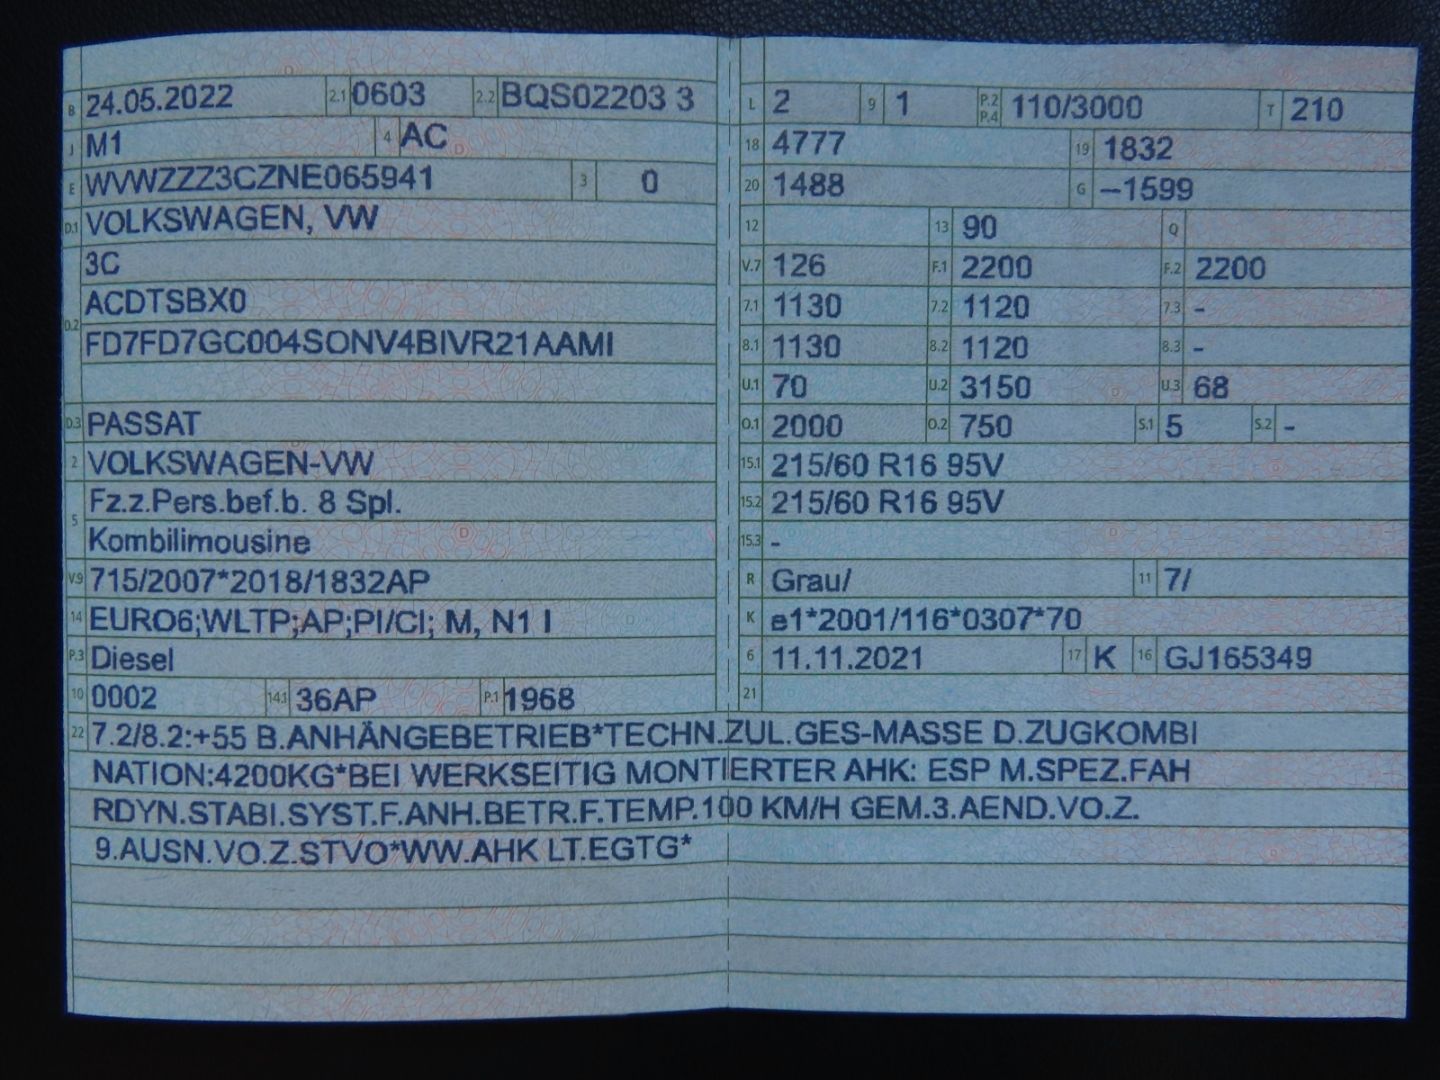 B 24.05.2022 2.1 0603 2.2 BQS02203 3
J M1 4 AC
E WVWZZZ3CZNE065941 3 0
D.1 VOLKSWAGEN, VW
3C
D.2 ACDTSBX0
FD7FD7GC004SONV4BIVR21AAMI
D.3 PASSAT
2 VOLKSWAGEN-VW
5 Fz.z.Pers.bef.b. 8 Spl.
Kombilimousine
V.9 715/2007*2018/1832AP
14 EURO6;WLTP;AP;PI/CI; M, N1 I
P.3 Diesel
10 0002 14.1 36AP P.1 1968
L 2 9 1 P.2 P.4 110/3000 T 210
18 4777 19 1832
20 1488 G –1599
12 13 90 Q
V.7 126 F.1 2200 F.2 2200
7.1 1130 7.2 1120 7.3 -
8.1 1130 8.2 1120 8.3 -
U.1 70 U.2 3150 U.3 68
O.1 2000 O.2 750 S.1 5 S.2 -
15.1 215/60 R16 95V
15.2 215/60 R16 95V
15.3 -
R Grau/ 11 7/
K e1*2001/116*0307*70
6 11.11.2021 17 K 16 GJ165349
21
22 7.2/8.2:+55 B.ANHÄNGEBETRIEB*TECHN.ZUL.GES-MASSE D.ZUGKOMBI
NATION:4200KG*BEI WERKSEITIG MONTIERTER AHK: ESP M.SPEZ.FAH
RDYN.STABI.SYST.F.ANH.BETR.F.TEMP.100 KM/H GEM.3.AEND.VO.Z.
9.AUSN.VO.Z.STVO*WW.AHK LT.EGTG*